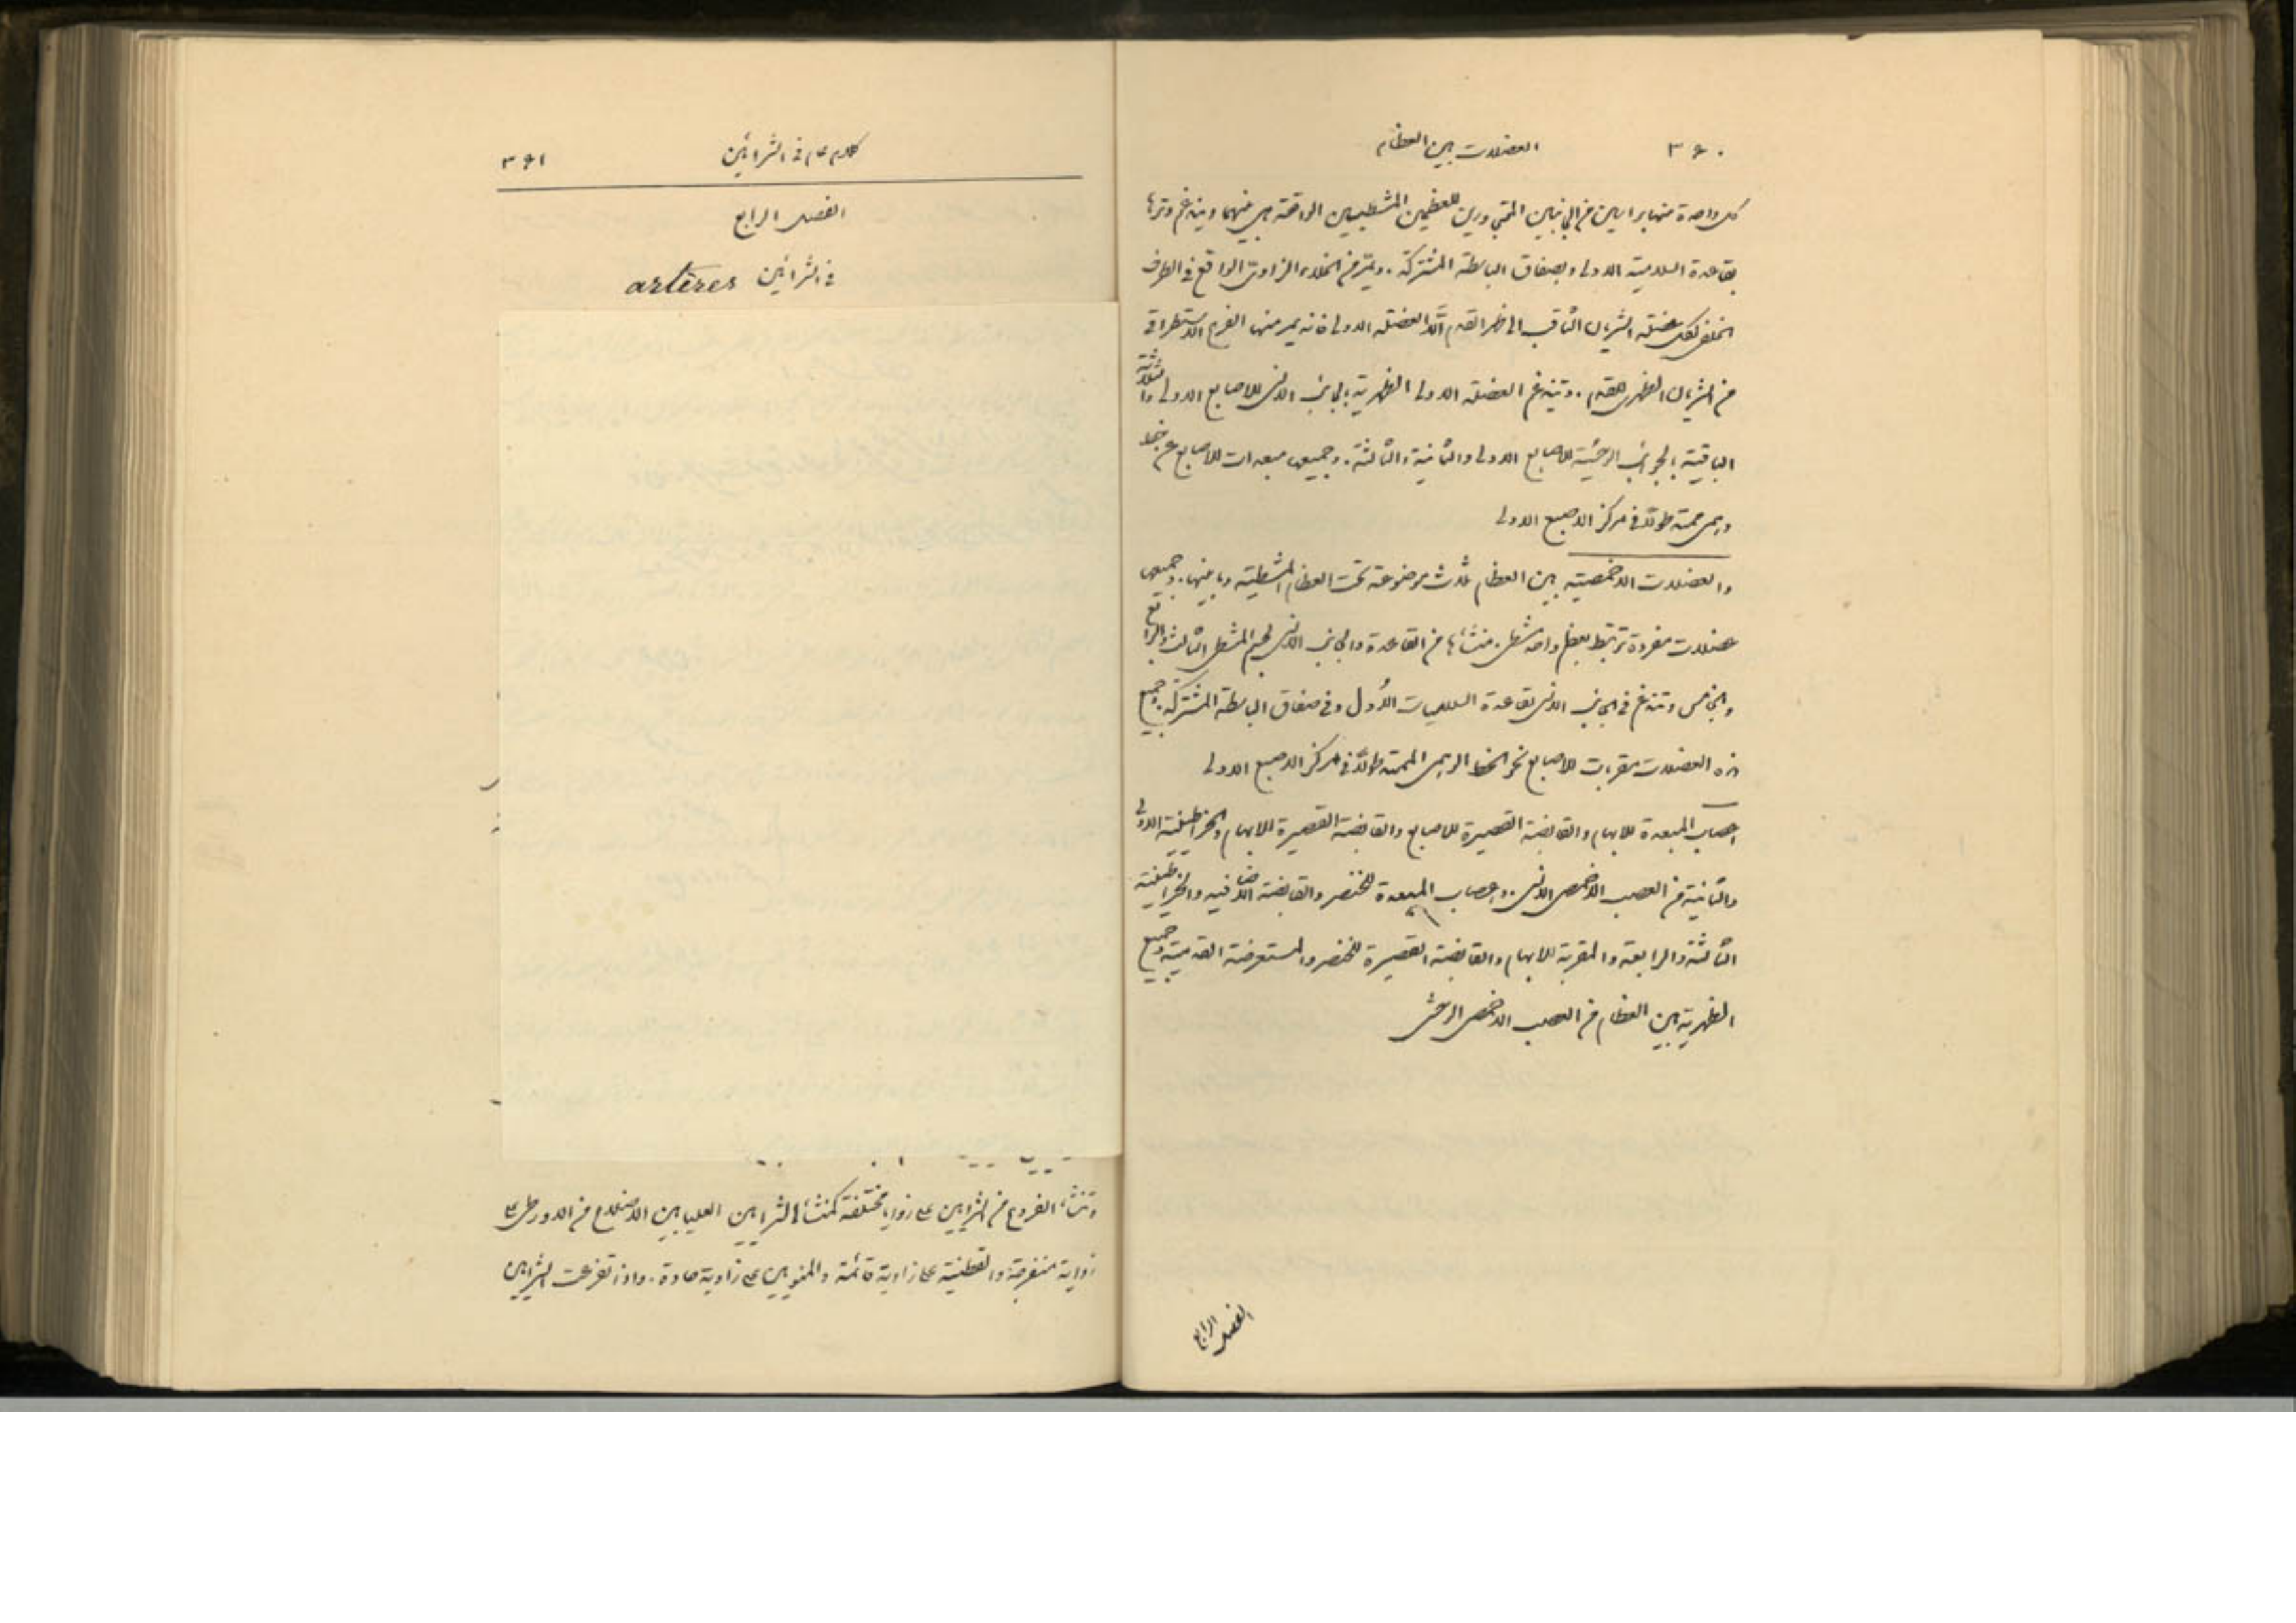 ٣٦٠ العضلات بين العظام
كل واحدة منها براسين من الجانبين المتجاورين للعظمين المشطيين الواقعة هي بينهما ويندغم وترها
بقاعدة السلامية الاولى وبصفاق الباسطة المشتركة. ويمر من الخلاء الزاوي الواقع في الطرف
الخلفي لكل عضلة الشريان الثاقب الى ظهر القدم الّا العضلة الاولى فانه يمر منها الفرع الاستطراقي
من الشريان الظهري للقدم. وتندغم العضلة الاولى الظهرية بالجانب الانسي للاصابع الاولى والثلاثة
الباقية بالجوانب الوحشية للاصابع الاولى والثانية والثالثة. وجميعها مبعدات للاصابع عن خط
وهمي ممتد طولًا في مركز الاصبع الاولى
والعضلات الاخمصية بين العظام ثلاث موضوعة تحت العظام المشطية وبينها. وجميعها
عضلات مفردة ترتبط بعظم واحد مشطي. منشأها من القاعدة والجانب الانسي لجسم المشطي الثالث والرابع
والخامس وتندغم في الجانب الانسي لقاعدة السلاميات الأُول وفي صفاق الباسطة المشتركة. وجميع
هذه العضلات مقربات للاصابع نحو الخط الوهمي الممتد طولًا في مركز الاصبع الاولى
اعصاب المبعدة للابهام والقابضة القصيرة للاصابع والقابضة القصيرة للابهام والخراطينية الاولى
والثانية من العصب الاخمصي الانسي. واعصاب المبعدة للخنصر والقابضة الاضافية والخراطينية
الثالثة والرابعة والمقربة للابهام والقابضة القصيرة للخنصر والمستعرضة القدمية وجميع
الظهرية بين العظام من العصب الاخمصي الوحشي
الفصل الرابع
كلام عام في الشرائين ٣٦١
الفصل الرابع
في الشرائين artères
وتنشأ الفروع من الشرايين على زوايا مختلفة كمنشأ الشرايين العليا بين الاضلاع من الاورطى على
زواية منفرجة والقطنية على زاوية قائمة والمنويين على زاوية حادة. واذا تفرعت الشرايين